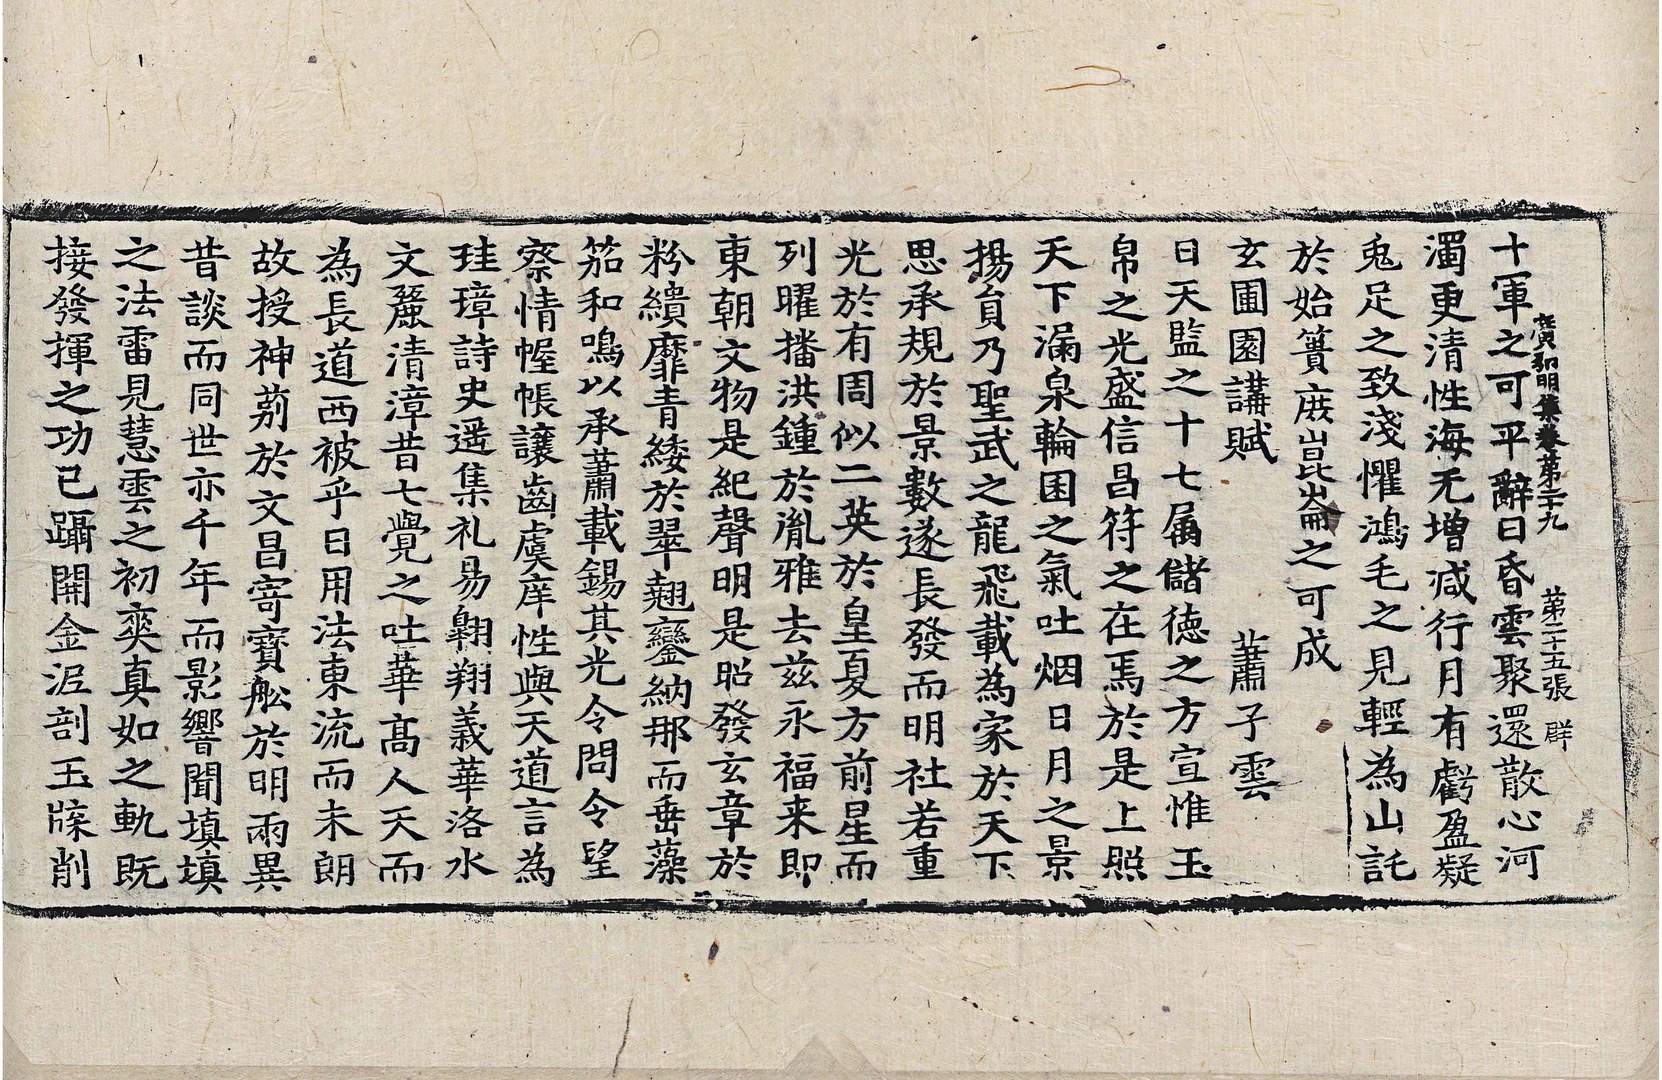 十軍之可平辭日昏雲聚還散心河
廣弘明集卷第二十九 第二十五張 群
濁更清性海无增減行月有虧盈凝
兎足之致淺懼鴻毛之見輕為山託
於始簣庶崑崙之可成
玄圃園講賦 蕭子雲
日天監之十七属儲徳之方宣惟玉
帛之光盛信昌符之在焉於是上照
天下漏泉輪囷之氣吐烟日月之景
揚貟乃聖武之龍飛載為家於天下
思承規於景數遂長發而明社若重
光於有周似二英於皇夏方前星而
列曜播洪鍾於胤雅去兹永福来即
東朝文物是紀聲明是昭發玄章於
粉繢靡青緌於翠翹鑾納那而垂藻
笳和鳴以承蕭載錫其光令問令望
察情幄帳讓齒虞庠性與天道言為
珪璋詩史遥集礼易翱翔義華洛水
文麗清漳昔七覺之吐華髙人天而
為長道西被乎日用法東流而未朗
故授神莂於文昌寄寶舩於明兩異
昔談而同世亦千年而影響聞填填
之法雷見慧雲之初奕真如之軌既
接發揮之功已躡開金泥剖玉牒削